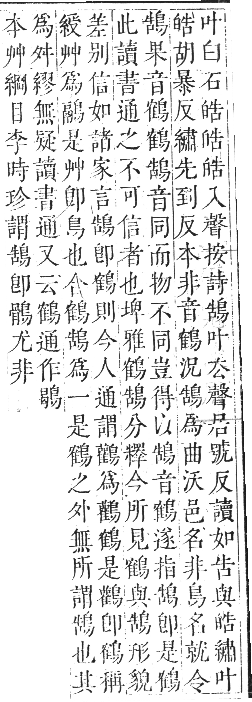 叶白石皓皓皓入聲按詩鵠叶去聲居號反讀如告與皓繡叶
皓胡暴反繡先到反本非音鶴況鵠為曲沃邑名非鳥名就令
鵠果音鶴鶴鵠音同而物不同豈得以鵠音鶴遂指鵠即是鶴
此讀書通之不可信者也埤雅鶴鵠分釋今所見鶴與鵠形貌
差別信如諸家言鵠即鶴則今人通謂鸛為鸛鶴是鸛即鶴稱
綬艸為鷊是艸即鳥也合鶴鵠為一是鶴之外無所謂鵠也其
為舛繆無疑讀書通又云鶴通作鶮
本艸綱目李時珍謂鵠即鶻尤非